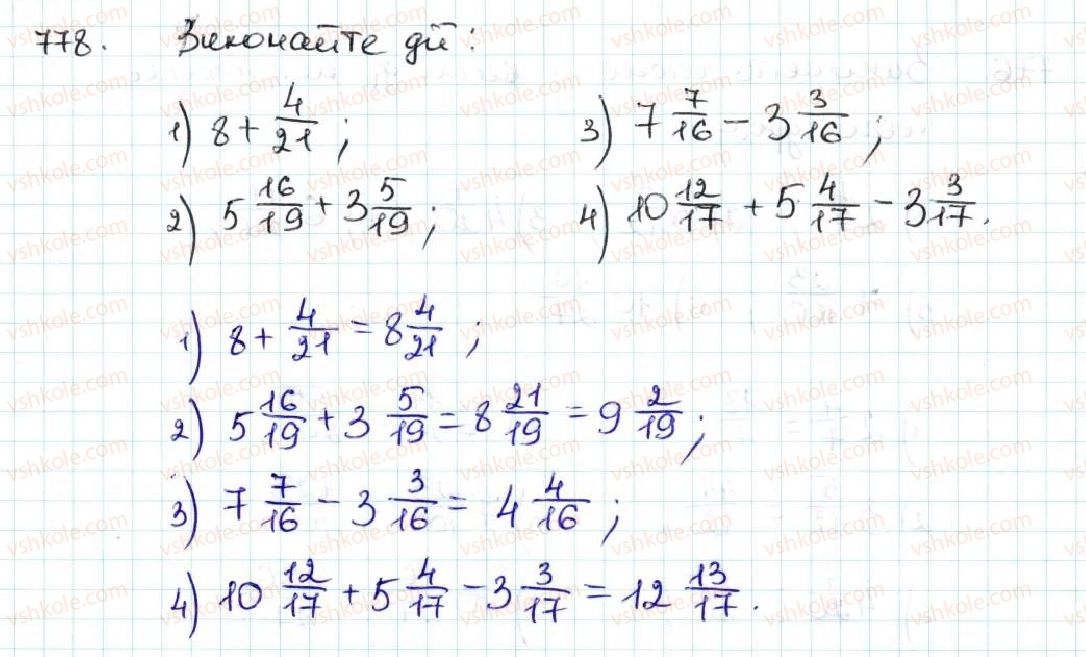 778. Виконайте дії:
1) 8 + 4/21 ; 3) 7 7/16 − 3 3/16 ;
2) 5 16/19 + 3 5/19 ; 4) 10 12/17 + 5 4/17 − 3 3/17 .
1) 8 + 4/21 = 8 4/21 ;
2) 5 16/19 + 3 5/19 = 8 21/19 = 9 2/19 ;
3) 7 7/16 − 3 3/16 = 4 4/16 ;
4) 10 12/17 + 5 4/17 − 3 3/17 = 12 13/17 .
vshkole.com